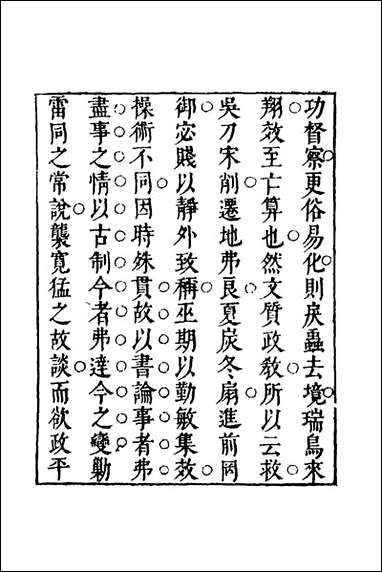 功督察更俗易化則戾蟲去境瑞鳥來
翔效至亡算也然文質政敎所以云救
吳刀宋削遷地弗良夏炭冬扇進前罔
御宓賤以靜外致稱巫期以勤敏集效
操術不同因時殊貫故以書論事者弗
盡事之情以古制今者弗達今之變勦
雷同之常說襲寬猛之故談而欲政平